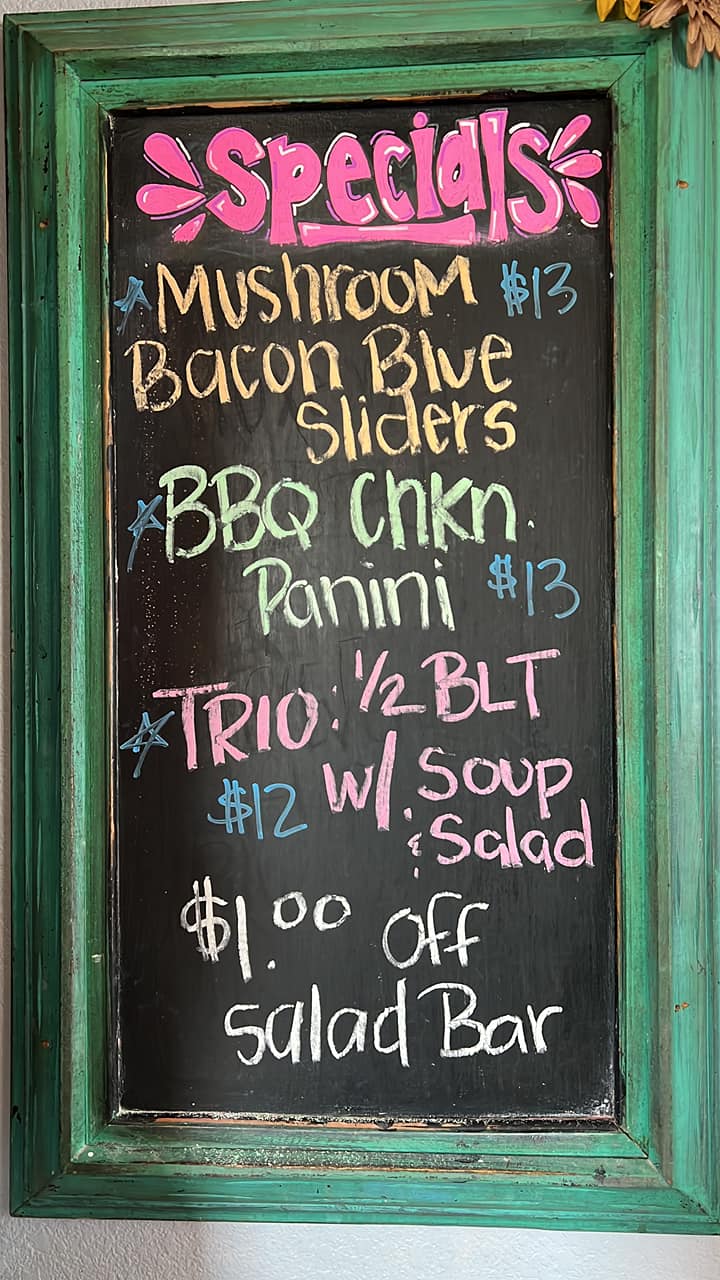 Specials
Mushroom $13
Bacon Blue
Sliders
BBQ Chkn.
Panini $13
TRIO: 1/2 BLT
$12 w/ Soup
& Salad
$1.00 off
salad Bar